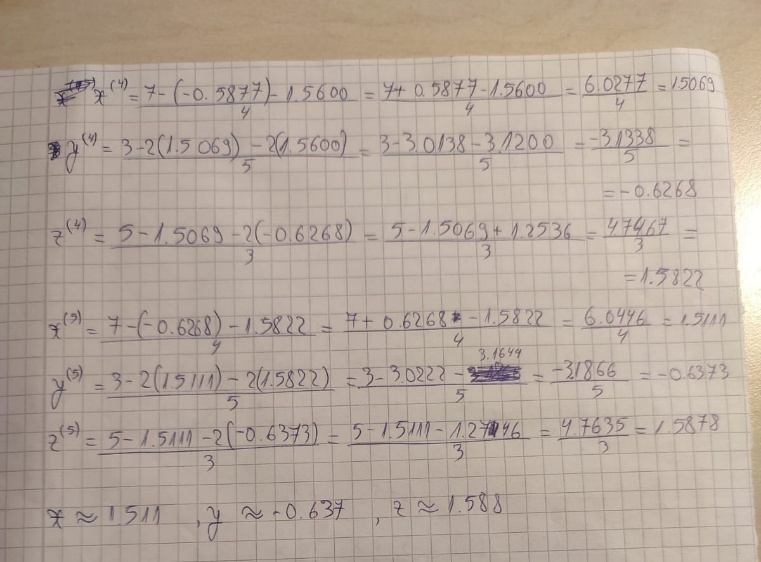 x⁽⁴⁾ = (7-(-0.5877)-1.5600)/4 = (7+0.5877-1.5600)/4 = 6.0277/4 = 1.5069
y⁽⁴⁾ = (3-2(1.5069)-2(1.5600))/5 = (3-3.0138-3.1200)/5 = -3.1338/5 =
= -0.6268
z⁽⁴⁾ = (5-1.5069-2(-0.6268))/3 = (5-1.5069+1.2536)/3 = 4.7467/3 =
= 1.5822
x⁽⁵⁾ = (7-(-0.6268)-1.5822)/4 = (7+0.6268-1.5822)/4 = 6.0446/4 = 1.5111
y⁽⁵⁾ = (3-2(1.5111)-2(1.5822))/5 = (3-3.0222-3.1644)/5 = -3.1866/5 = -0.6373
z⁽⁵⁾ = (5-1.5111-2(-0.6373))/3 = (5-1.5111-1.2746)/3 = 4.7635/3 = 1.5878
x ≈ 1.511 , y ≈ -0.637 , z ≈ 1.588